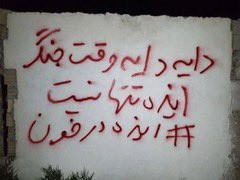 دایه دایه وقت جنگ
ایذه تنها نیست
#ایذه در خون